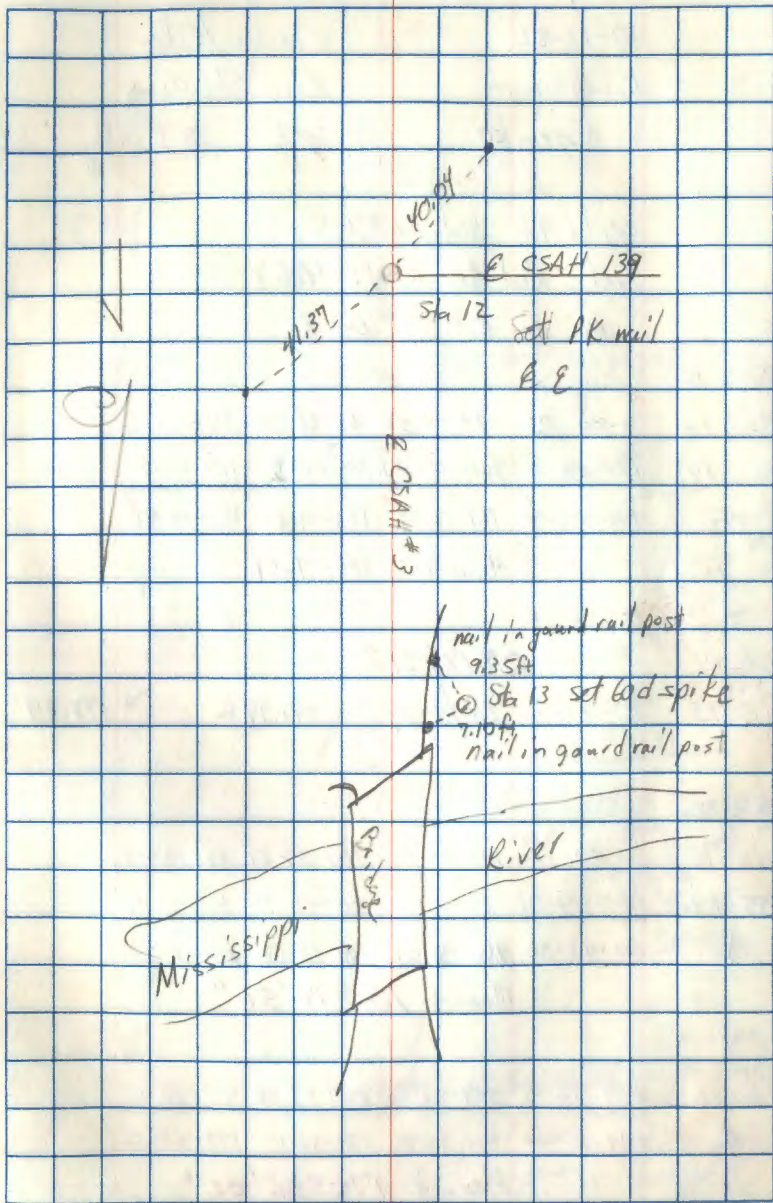 40.04
℄ CSAH 139
Sta 12
41.37
Set PK nail
℄ ℄
℄ CSAH #3
nail in gaurd rail post
9.35ft
Sta 13 set 60d spike
7.10ft
nail in gaurd rail post
Bridge
River
Mississippi